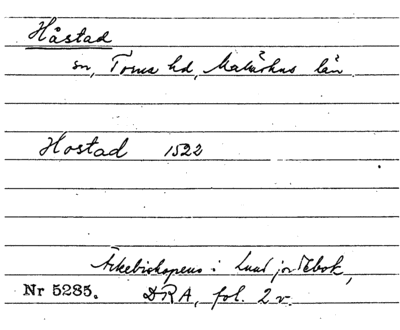 Håstad
sn, Torna hd, Malmöhus län
Hostad 1522
Ärkebiskopens i Lund jordebok,
Nr 5285. DRA, fol. 2 v.